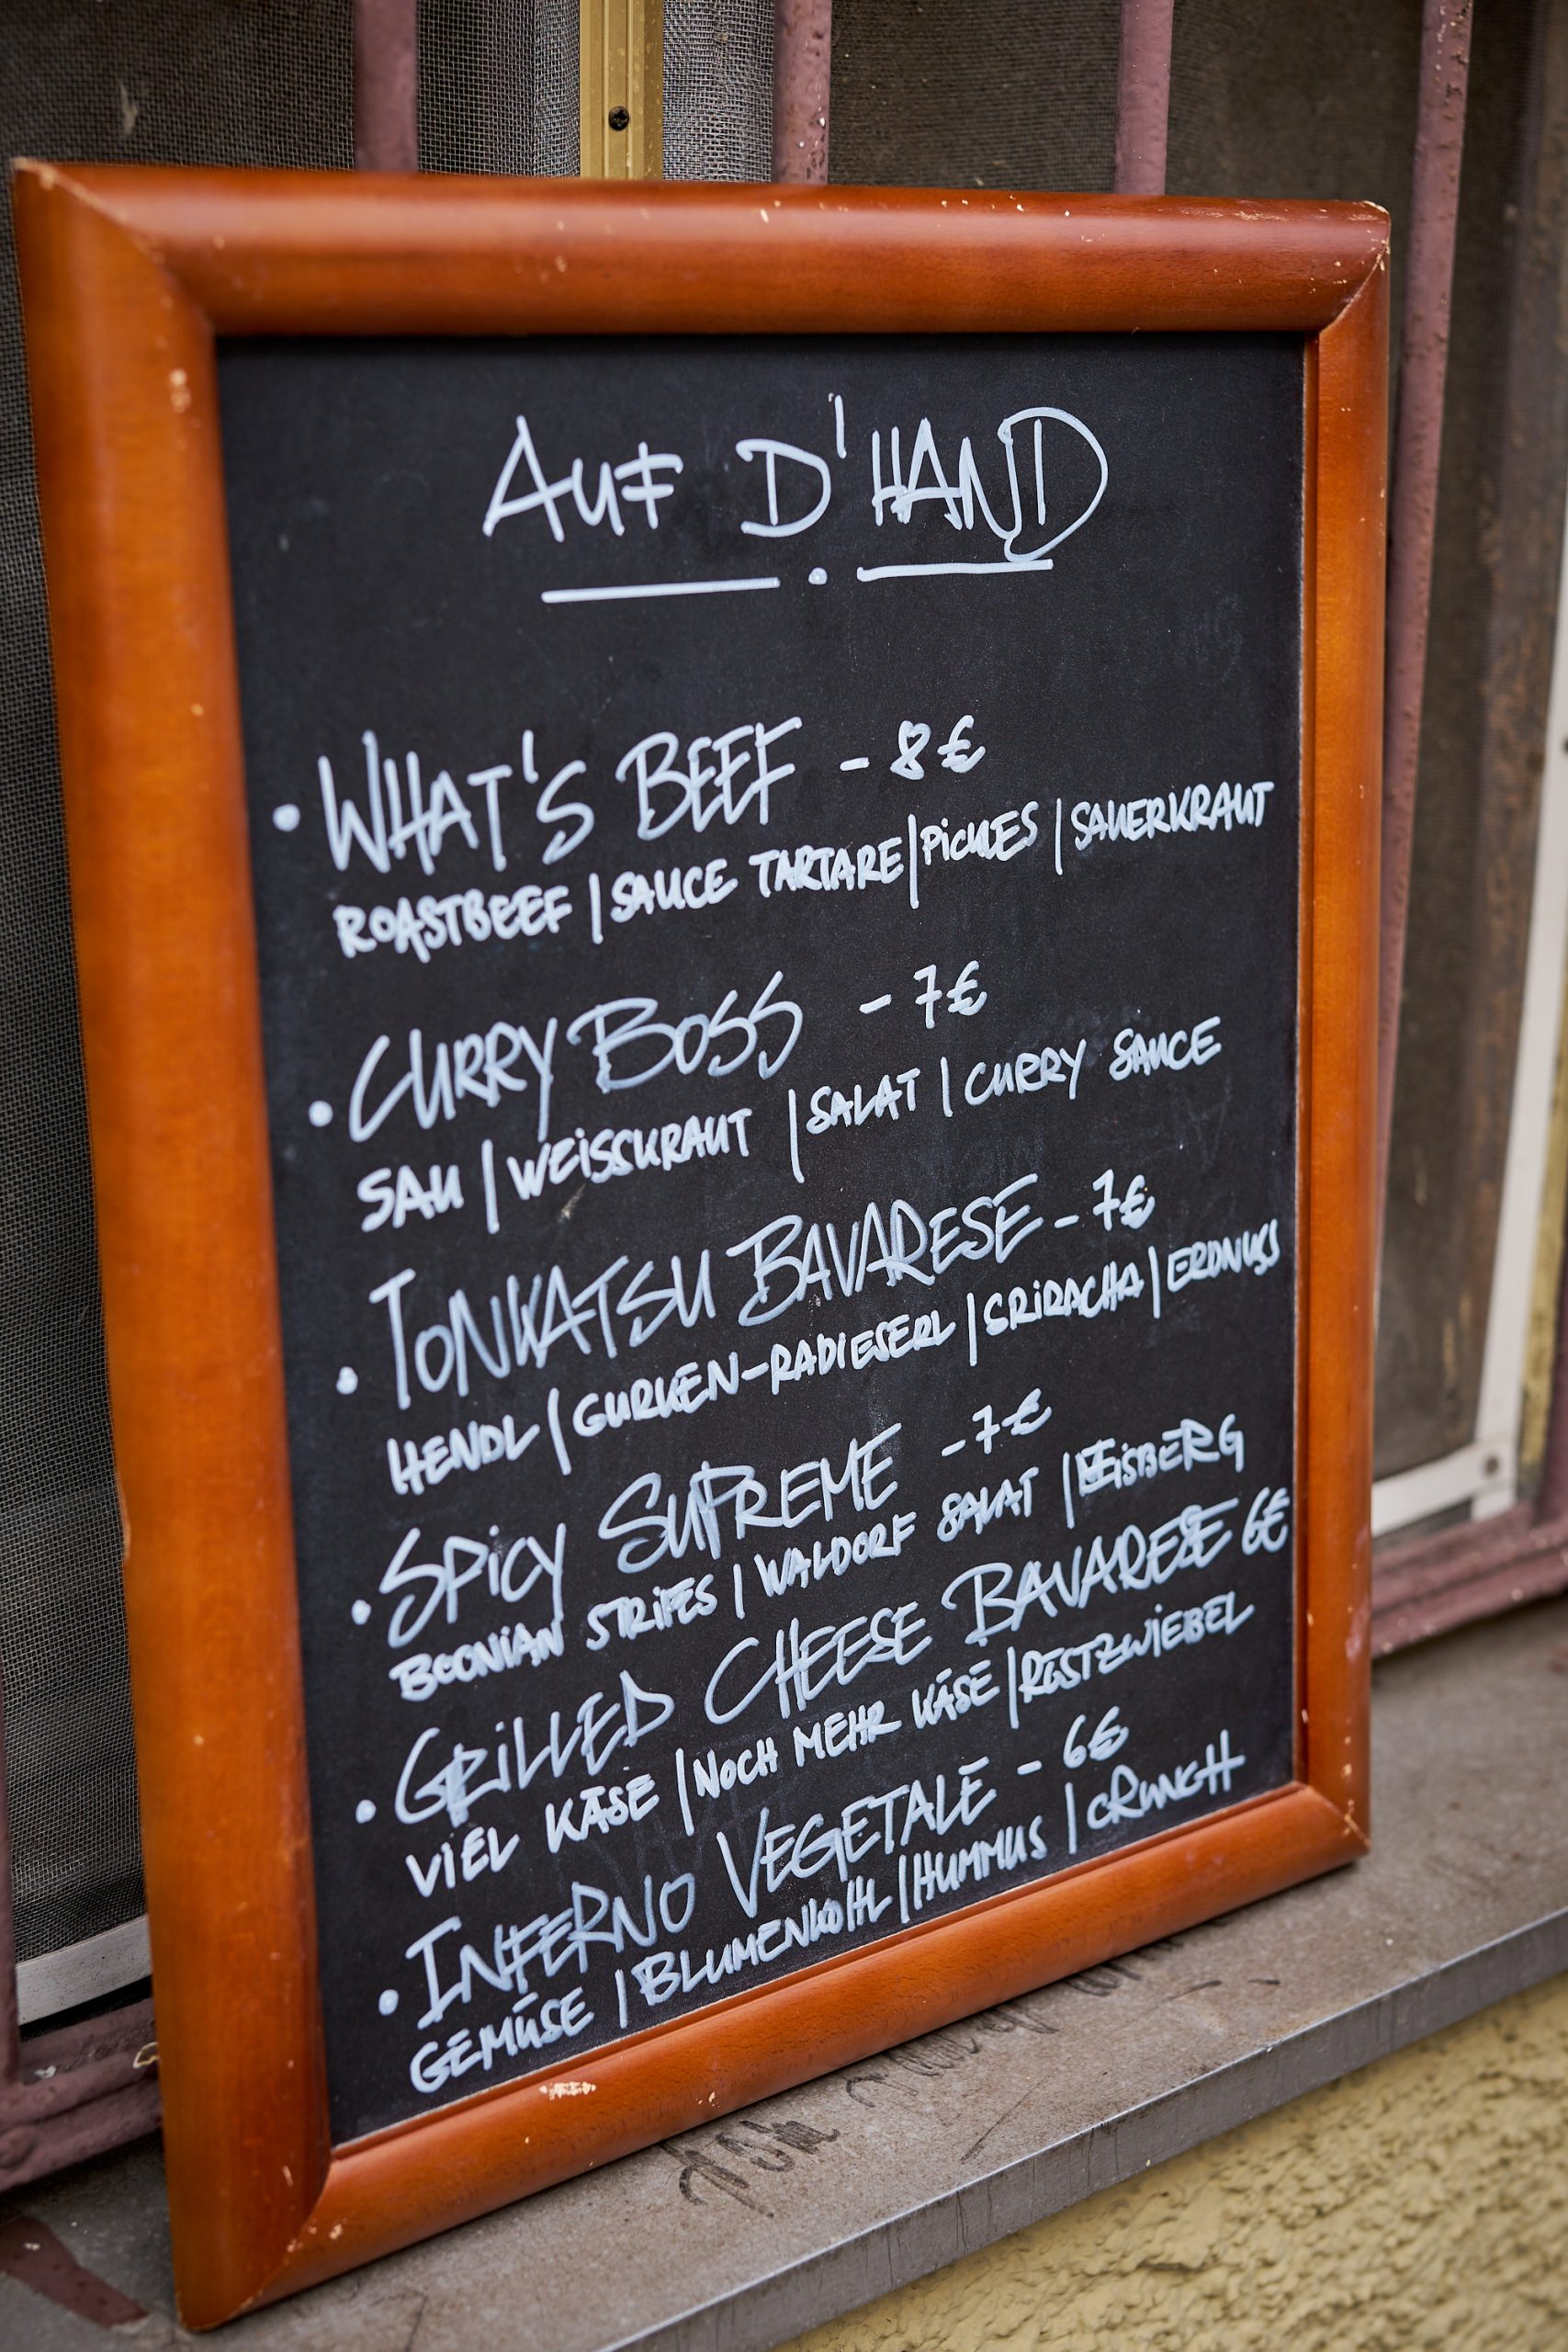 AUF D'HAND
• WHAT'S BEEF - 8€
ROASTBEEF | SAUCE TARTARE | PICKLES | SAUERKRAUT
• CURRY BOSS - 7€
SAU | WEISSKRAUT | SALAT | CURRY SAUCE
• TONKATSU BAVARESE - 7€
HENDL | GURKEN-RADIESERL | SRIRACHA | ERDNUSS
• SPICY SUPREME - 7€
STRIPES | WALDORF SALAT | EISBERG
• GRILLED CHEESE BAVARESE 6€
VIEL KÄSE | NOCH MEHR KÄSE | RÖSTZWIEBEL
• INFERNO VEGETALE - 6€
GEMÜSE | BLUMENKOHL | HUMMUS | CRUNCH